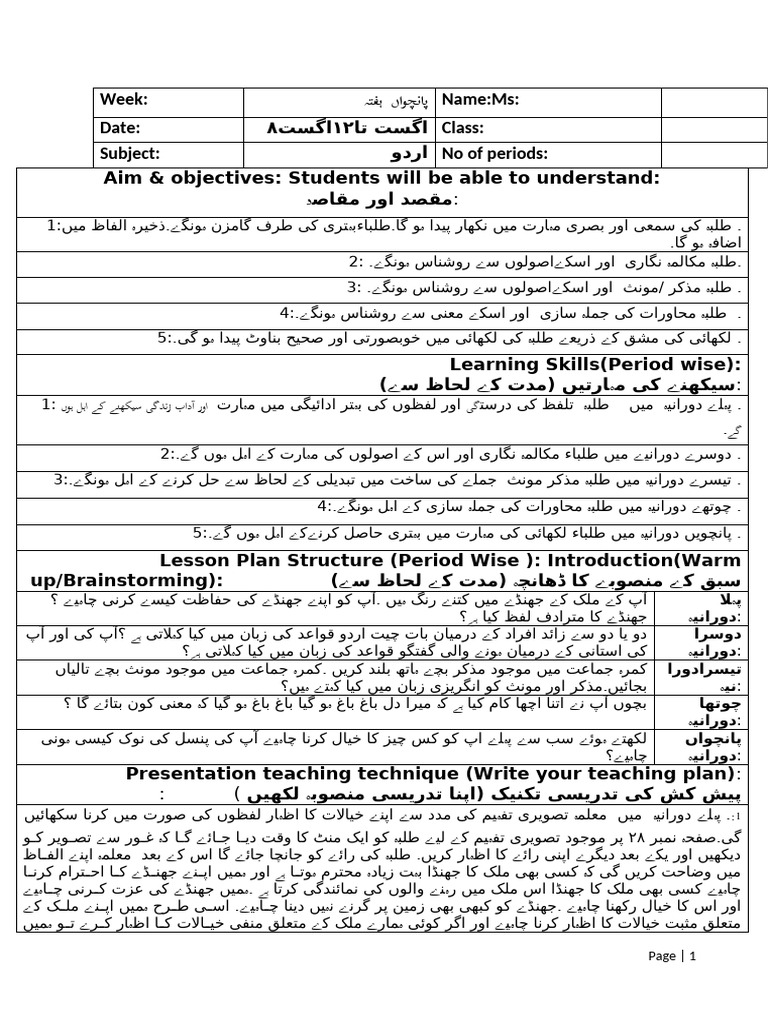 Week: پانچواں ہفتہ Name:Ms:
Date: ۸اگست تا۱۲اگست Class:
Subject: اردو No of periods:
Aim & objectives: Students will be able to understand:
مقصد اور مقاصد:
1:. طلبہ کی سمعی اور بصری مہارت میں نکھار پیدا ہو گا.طلباءبہتری کی طرف گامزن ہونگے.ذخیرہ الفاظ میں
اضافہ ہو گا.
2: .طلبہ مکالمہ نگاری اور اسکےاصولوں سے روشناس ہونگے.
3: . طلبہ مذکر /مونث اور اسکےاصولوں سے روشناس ہونگے.
4:. طلبہ محاورات کی جملہ سازی اور اسکے معنی سے روشناس ہونگے.
5:. لکھائی کی مشق کے ذریعے طلبہ کی لکھائی میں خوبصورتی اور صحیح بناوٹ پیدا ہو گی.
Learning Skills(Period wise):
سیکھنے کی مہارتیں (مدت کے لحاظ سے):
1: . پہلے دورانیہ میں طلبہ تلفظ کی درستگی اور لفظوں کی بہتر ادائیگی میں مہارت اور آداب زندگی سیکھنے کے اہل ہوں
گے۔
2:. دوسرے دورانیے میں طلباء مکالمہ نگاری اور اس کے اصولوں کی مہارت کے اہل ہوں گے.
3:. تیسرے دورانیہ میں طلبہ مذکر مونث جملے کی ساخت میں تبدیلی کے لحاظ سے حل کرنے کے اہل ہونگے.
4:. چوتھے دورانیہ میں طلبہ محاورات کی جملہ سازی کے اہل ہونگے.
5:. پانچویں دورانیہ میں طلباء لکھائی کی مہارت میں بہتری حاصل کرنےکے اہل ہوں گے.
Lesson Plan Structure (Period Wise ): Introduction(Warm
up/Brainstorming): سبق کے منصوبے کا ڈھانچہ (مدت کے لحاظ سے)
پہلا آپ کے ملک کے جھنڈے میں کتنے رنگ ہیں .آپ کو اپنے جھنڈے کی حفاظت کیسے کرنی چاہیے ؟
دورانیہ: جھنڈے کا مترادف لفظ کیا ہے؟
دوسرا دو یا دو سے زائد افراد کے درمیان بات چیت اردو قواعد کی زبان میں کیا کہلاتی ہے ؟آپ کی اور آپ
دورانیہ: کی استانی کے درمیان ہونے والی گفتگو قواعد کی زبان میں کیا کہلاتی ہے؟
تیسرادورا کمرہ جماعت میں موجود مذکر بچے ہاتھ بلند کریں .کمرہ جماعت میں موجود مونث بچے تالیاں
نیہ: بجائیں.مذکر اور مونث کو انگریزی زبان میں کیا کہتے ہیں؟
چوتھا بچوں آپ نے اتنا اچھا کام کیا ہے کہ میرا دل باغ باغ ہو گیا باغ باغ ہو گیا کہ معنی کون بتائے گا ؟
دورانیہ:
پانچواں لکھتے ہوئے سب سے پہلے آپ کو کس چیز کا خیال کرنا چاہیے آپ کی پنسل کی نوک کیسی ہونی
دورانیہ: چاہیے؟
Presentation teaching technique (Write your teaching plan):
پیش کش کی تدریسی تکنیک (اپنا تدریسی منصوبہ لکھیں ) :
1:. پہلے دورانیہ میں معلمہ تصویری تفہیم کی مدد سے اپنے خیالات کا اظہار لفظوں کی صورت میں کرنا سکھائیں
گی.صفحہ نمبر ۲۸ پر موجود تصویری تفہیم کے لیے طلبہ کو ایک منٹ کا وقت دیا جائے گا کہ غور سے تصویر کو
دیکھیں اور یکے بعد دیگرے اپنی رائے کا اظہار کریں. طلبہ کی رائے کو جانچا جائے گا اس کے بعد معلمہ اپنے الفاظ
میں وضاحت کریں گی کہ کسی بھی ملک کا جھنڈا بہت زیادہ محترم ہوتا ہے اور ہمیں اپنے جھنڈے کا احترام کرنا
چاہیے کسی بھی ملک کا جھنڈا اس ملک میں رہنے والوں کی نمائندگی کرتا ہے .ہمیں جھنڈے کی عزت کرنی چاہیے
اور اس کا خیال رکھنا چاہیے .جھنڈے کو کبھی بھی زمین پر گرنے نہیں دینا چاہیے. اسی طرح ہمیں اپنے ملک کے
متعلق مثبت خیالات کا اظہار کرنا چاہیے اور اگر کوئی ہمارے ملک کے متعلق منفی خیالات کا اظہار کرے تو ہمیں
Page | 1